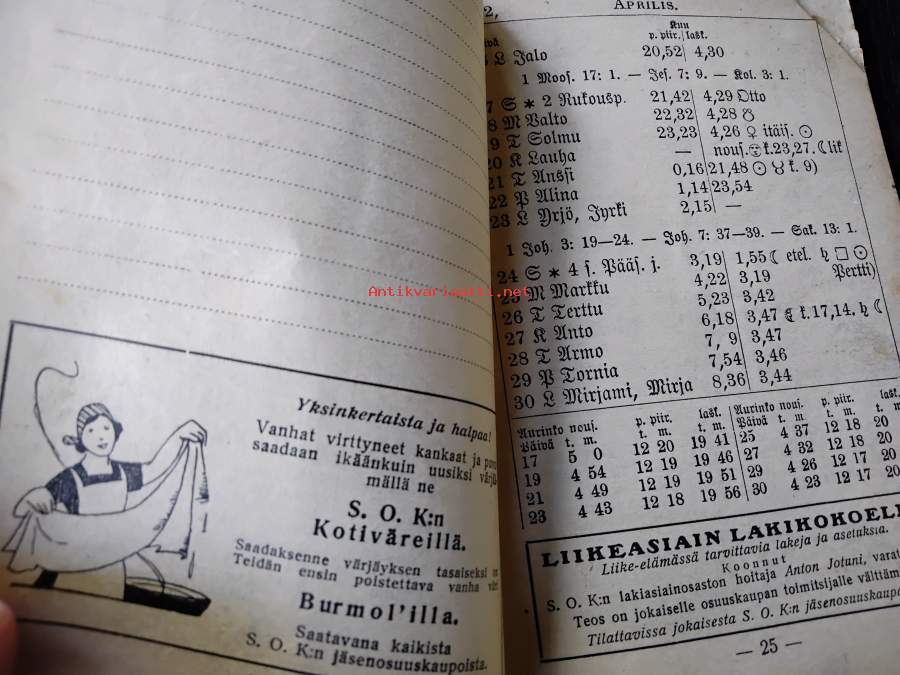 Yksinkertaista ja halpaa!
Vanhat virttyneet kankaat ja
saadaan ikäänkuin uusiksi
mällä ne
S. O. K:n
Kotiväreillä.
Saadaksenne värjäyksen tasaiseksi
Teidän ensin poistettava vanha
Burmol'illa.
Saatavana kaikista
S. O. K:n jäsenosuuskaupoista.
2, APRILIS.
Kuu
p. piir. lask.
L Jalo 20,52 4,30
1 Moos. 17: 1. — Jes. 7: 9. — Kol. 3: 1.
7 S * 2 Rukousp. 21,42 4,29 Otto
8 M Valto 22,32 4,28 ☋
9 T Solmu 23,23 4,26 ♀ itäis. ☉
20 K Lauha — nous. k.23,27. ☾lik
21 T Anssi 0,16 21,48 ☉ ♉ k. 9)
22 P Alina 1,14 23,54
23 L Yrjö, Jyrki 2,15 —
1 Joh. 3: 19—24. — Joh. 7: 37—39. — Sak. 13: 1.
24 S * 4 s. Pääs. j. 3,19 1,55 ☾ etel. ♄ □ ☉
25 M Markku 4,22 3,19 Pertti)
26 T Terttu 5,23 3,42
27 K Anto 6,18 3,47 ☾ k.17,14. ♄ ☾
28 T Armo 7, 9 3,47
29 P Tornia 7,54 3,46
30 L Mirjami, Mirja 8,36 3,44
Aurinko nousj. p. piir. lask. Aurinko nousj. p. piir. lask.
Päivä t. m. t. m. t. m. Päivä t. m. t. m. t. m
17 5 0 12 20 19 41 25 4 37 12 18 20
19 4 54 12 19 19 46 27 4 32 12 18 20
21 4 49 12 19 19 51 29 4 26 12 17 20
23 4 43 12 18 19 56 30 4 23 12 17 20
LIIKEASIAIN LAKIKOKOEL
Liike-elämässä tarvittavia lakeja ja asetuksia.
Koonnut
S. O. K:n lakiasiainosaston hoitaja Anton Jotani, varat
Teos on jokaiselle osuuskaupan toimitsijalle välttäm
Tilattavissa jokaisesta S. O. K:n jäsenosuuskaupo
— 25 —
Antikvariaatti.net